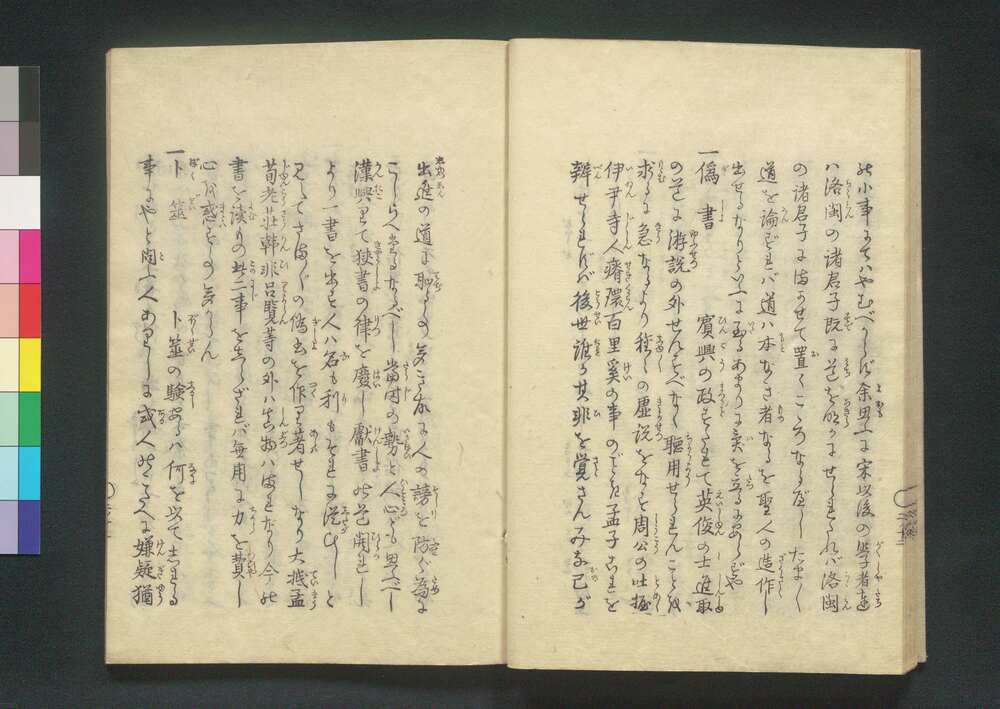 の小事にてハやむべからず余思ふに宋以後の学者達
ハ洛閩の諸君子既に道を明かにせられたれバ洛閩
の諸君子にまかせて置くこゝろなるべしたま〱
道を論ずれバ道ハ本なき者なるを聖人の造作し
出せるなりといふに至るあまりに異を立るにあらずや
一偽書 賓興の政すたれて英俊の士進取
の道に游説の外せんすべなく聴用せられんことを
求るに急なるより種々の虚説をなす周公の吐握
伊尹寺人瘠環百里奚の事のごとき孟子これを
辨せられずバ後世誰か其非を覚さんみな己が
出進の道に恥るの
人の謗を防ぐ為に
こしらへたるなるべし当時の勢と人心とも思ふべし
漢興りて挟書の律を廃し献書の道開れし
より一書を出す人ハ名も利もそれに従ひしと
見えてさま〲の偽書を作り著せしなり大抵孟
荀老荘韓非呂覧等の外ハ真物ハまれなり今の
書を読もの此二事をしらざれバ無用に力を費し
心を惑すもの多からん
一卜筮 卜筮の験あるハ何を以てしれる
事にやと問ふ人ありしに或人のこたへに嫌疑猶